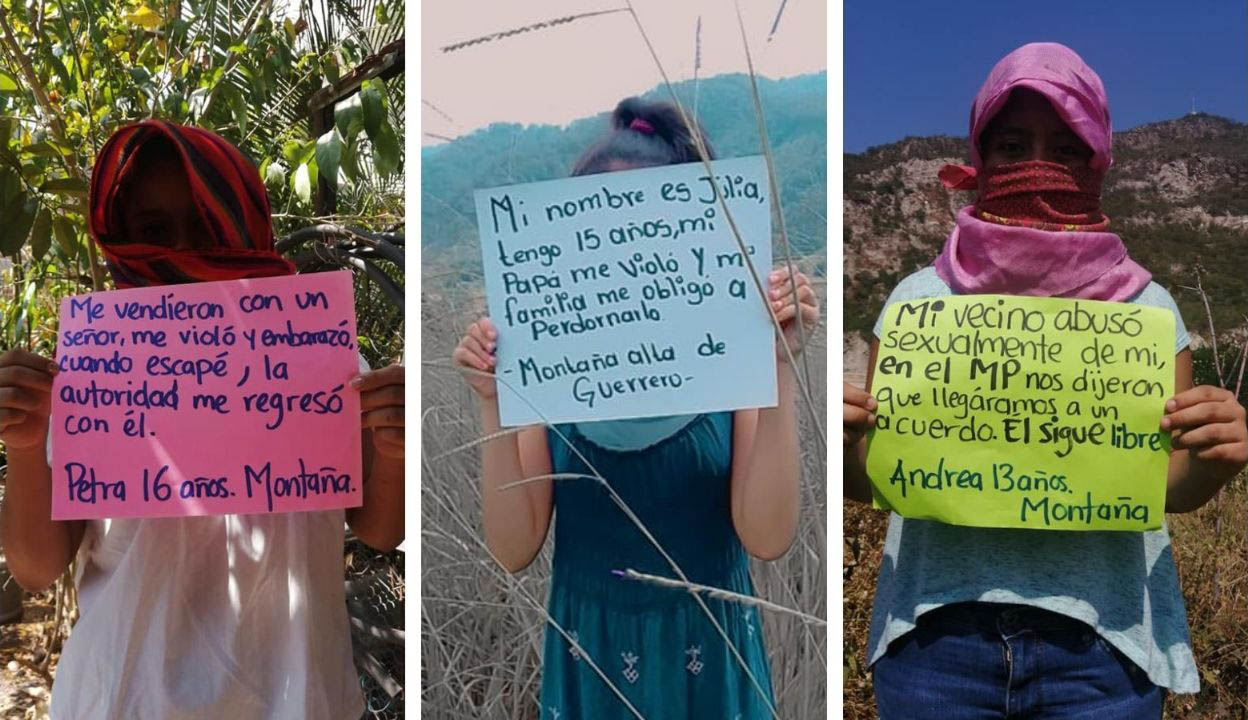 Me vendieron con un
señor, me violó y embarazó,
cuando escapé, la
autoridad me regresó
con él.
Petra 16 años. Montaña.
Mi nombre es Julia,
tengo 15 años, mi
Papá me violó y mi
familia me obligó a
Perdornarlo.
- Montaña alta de
Guerrero-
Mi vecino abusó
sexualmente de mi,
en el MP nos dijeron
que llegáramos a un
acuerdo. Él sigue libre
Andrea 13 años.
Montaña